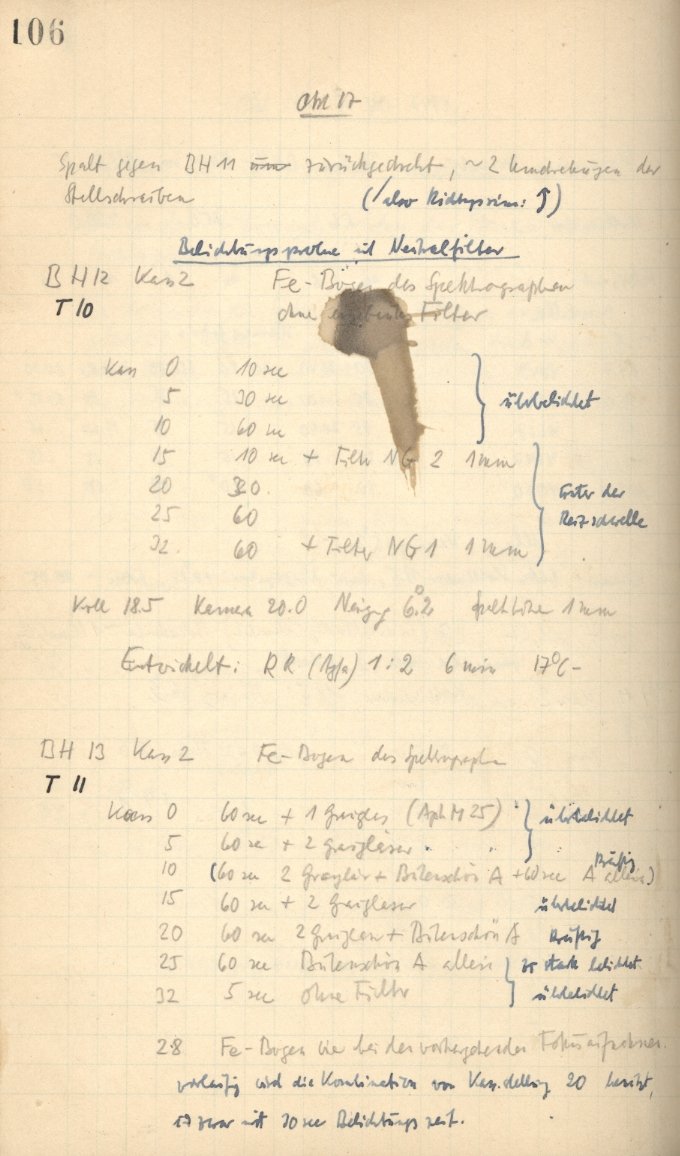 106
Okt 17
Spalt gegen BH 11 um zurückgedreht, ~ 2 Umdrehungen der
Stellschreiben
(also Richtgssinn: ↑)
Belichtungsprobe mit Neutralfilter
BH 12 Kass 2 Fe-Bogen des Spektrographen
T 10 ohne Filter
Kass 0 10 sec
5 30 sec überbelichtet
10 60 sec
15 10 sec + Filter NG 2 1 mm
20 30. unter der
25 60 Reizschwelle
32. 60 + Filter NG 1 1 mm
Koll 18.5 Kamera 20.0 Neigg 6.°2 Spalthöhe 1 mm
Entwickelt: RR (Agfa) 1:2 6 min 17°C-
BH 13 Kass 2 Fe-Bogen des Spektrographen
T 11
Kass 0 60 sec + 1 Grauglas (Aph M 25) überbelichtet
5 60 sec + 2 Graugläser
kräftig
10 (60 sec 2 Graugläser + Bitenschön A + 60 sec A allein)
15 60 sec + 2 Graugläser überbelichtet
20 60 sec 2 Grauglas + Bitenschön A kräftig
25 60 sec Bitenschön A allein zu stark belichtet
32 5 sec ohne Filter überbelichtet
28 Fe-Bogen wie bei den vorhergehenden Fokusaufnahmen.
vorläufig wird die Kombination von Kass.stellung 20 benützt,
und zwar mit 30 sec Belichtungszeit.